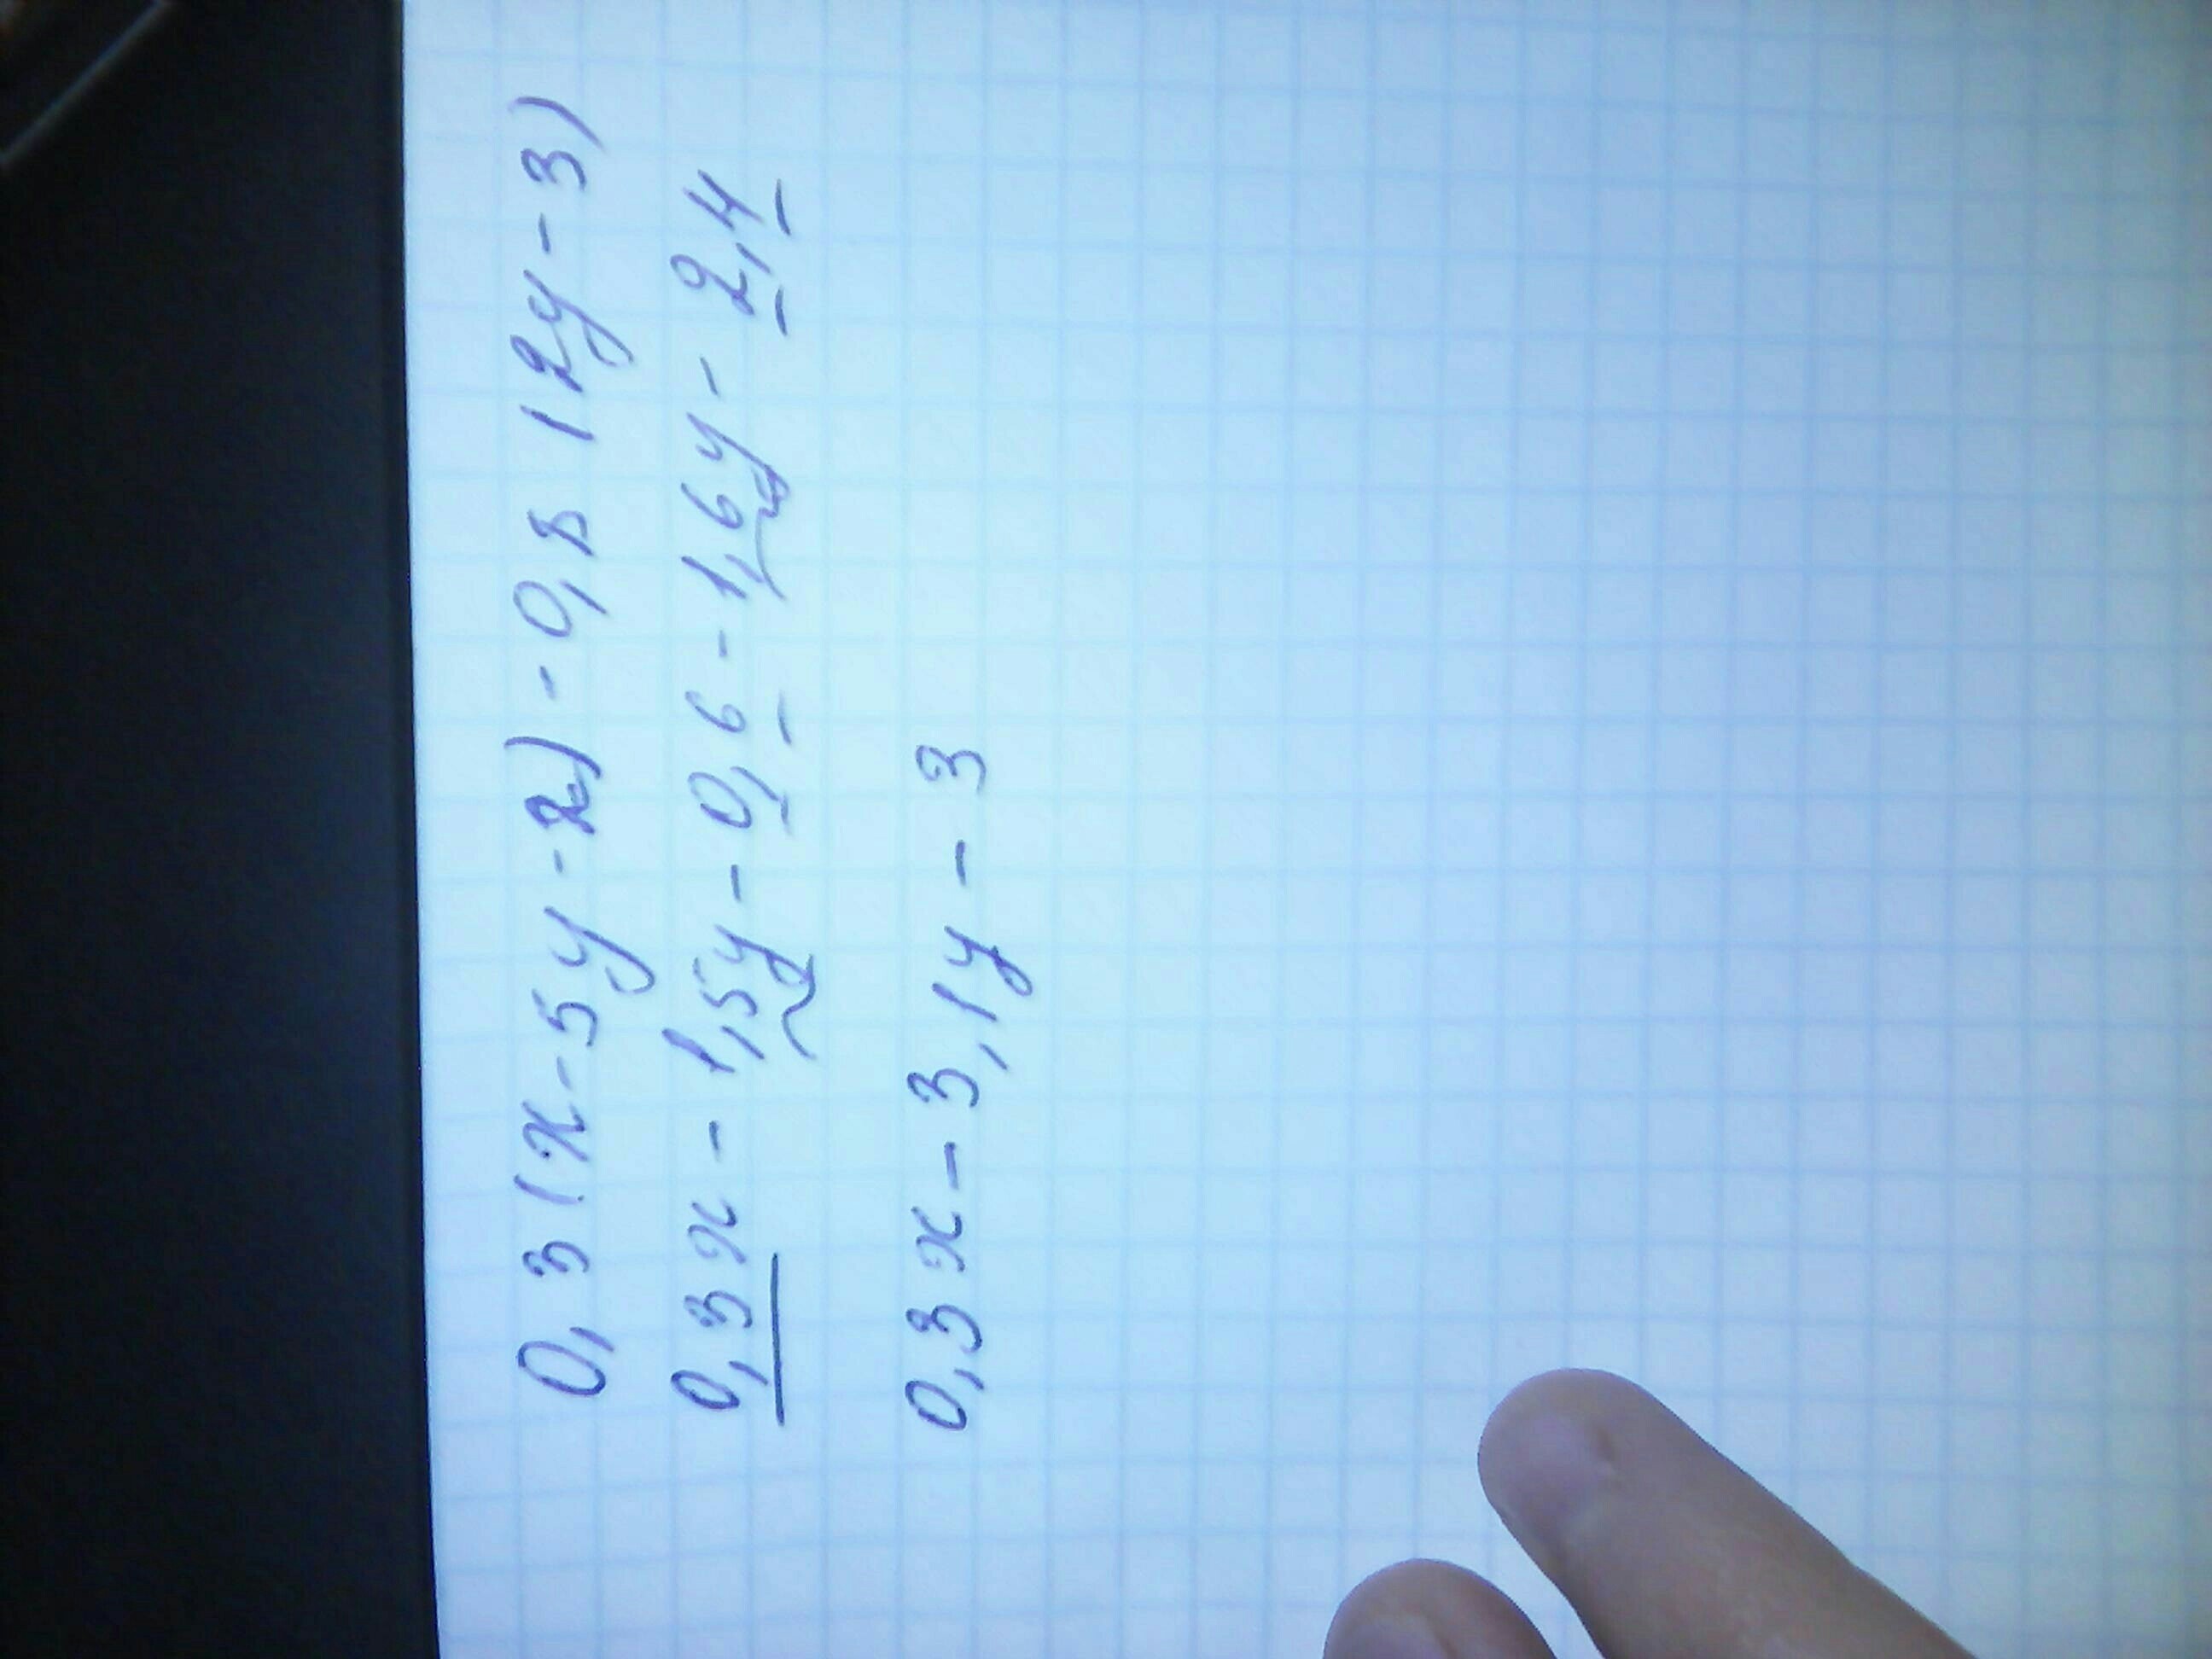 0,3(x-5y-2)-0,8(2y-3)
0,3x-1,5y-0,6-1,6y-2,4
0,3x-3,1y-3